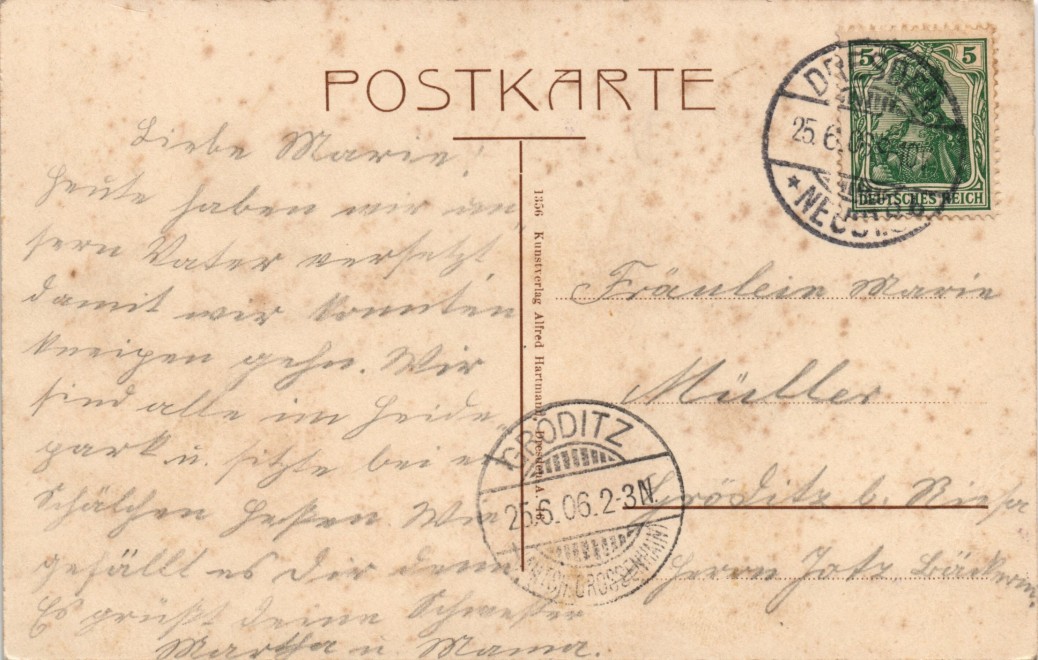 POSTKARTE
Liebe Marie!
Heute haben wir un
sern Vater versetzt,
damit wir konnten
kneipen gehn. Wir
sind alle im Heide
park u. sitzte bei e
Schälchen Heßen. Wie
gefällt es Dir denn
Es grüßt Deine Schwester
Martha u. Mama.
1356 Kunstverlag Alfred Hartmann, Dresden A. 16
5 5
DEUTSCHES REICH
DRESDEN
25.6.06
* NEUST.
Fräulein Marie
Müller
Gröditz b. Riesa
Herrn Bäckerm.
GRÖDITZ
25.6.06.2-3N.
GROSSENHAIN)